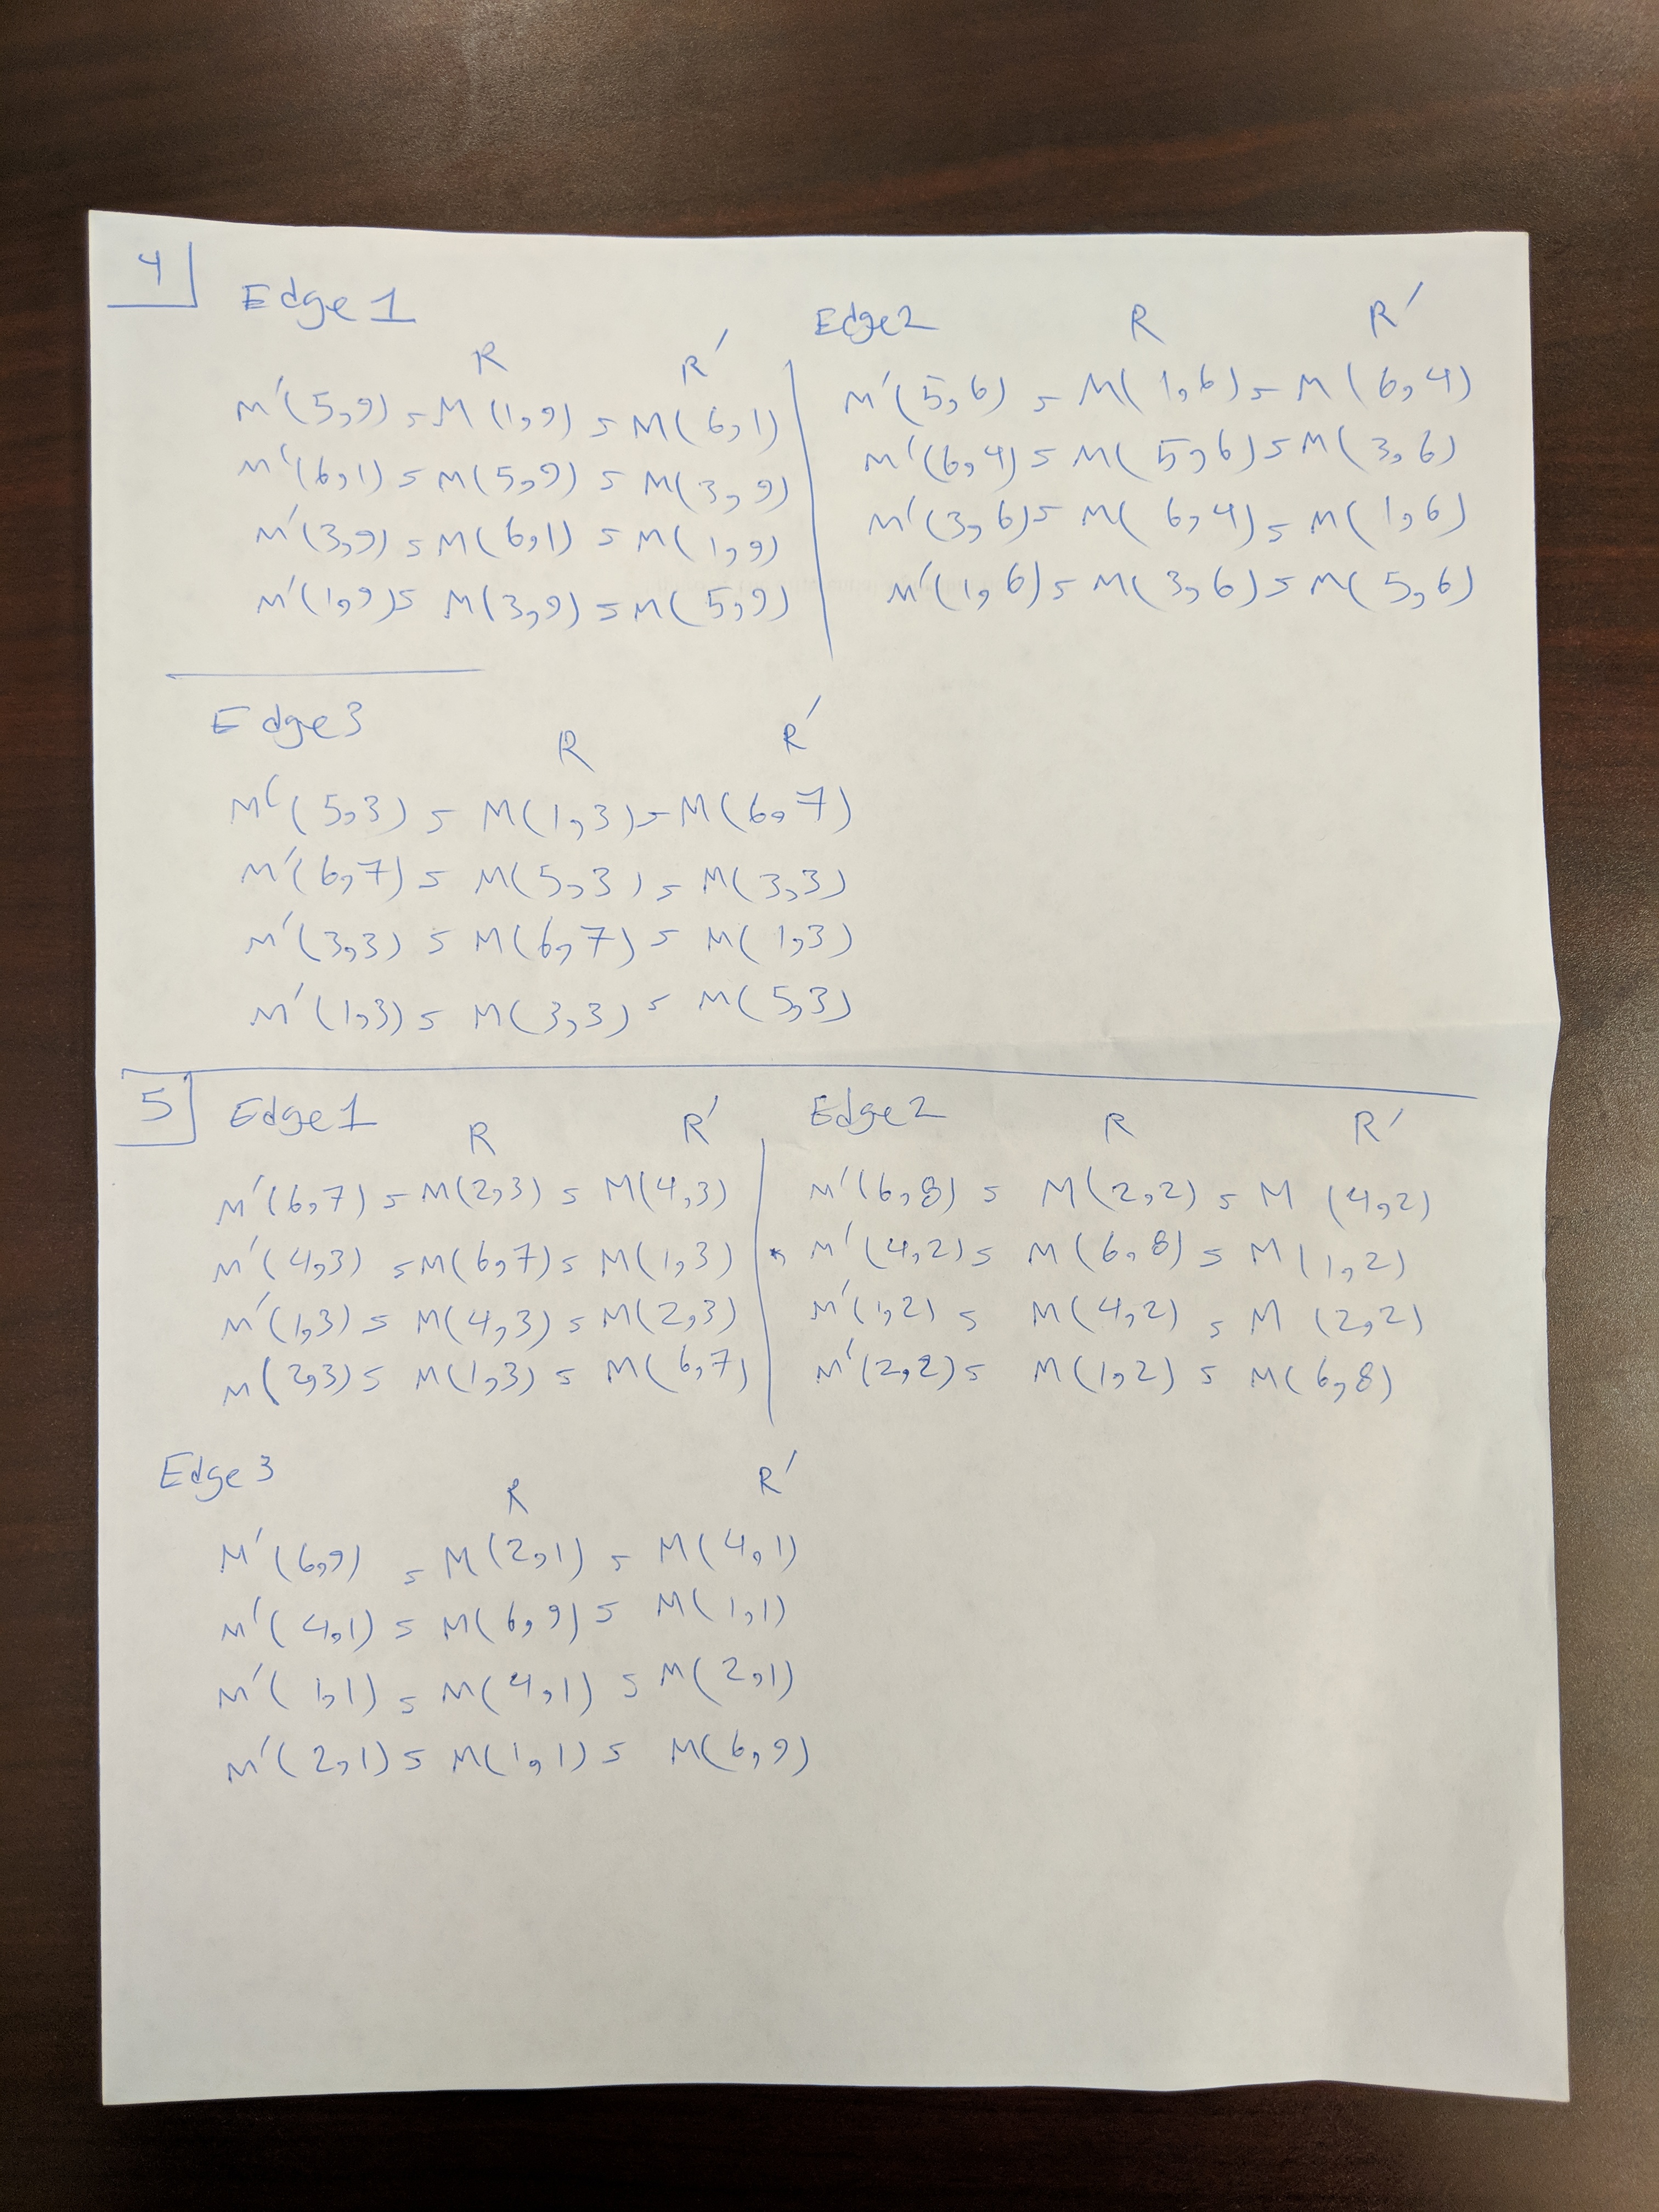 4
Edge 1
R R'
M'(5,9) = M(1,9) = M(6,1)
M'(6,1) = M(5,9) = M(3,9)
M'(3,9) = M(6,1) = M(1,9)
M'(1,9) = M(3,9) = M(5,9)
Edge2
R R'
M'(5,6) = M(1,6) = M(6,4)
M'(6,4) = M(5,6) = M(3,6)
M'(3,6) = M(6,4) = M(1,6)
M'(1,6) = M(3,6) = M(5,6)
Edge3
R R'
M'(5,3) = M(1,3) = M(6,7)
M'(6,7) = M(5,3) = M(3,3)
M'(3,3) = M(6,7) = M(1,3)
M'(1,3) = M(3,3) = M(5,3)
5
Edge1
R R'
M'(6,7) = M(2,3) = M(4,3)
M'(4,3) = M(6,7) = M(1,3)
M'(1,3) = M(4,3) = M(2,3)
M(2,3) = M(1,3) = M(6,7)
Edge2
R R'
M'(6,8) = M(2,2) = M(4,2)
M'(4,2) = M(6,8) = M(1,2)
M'(1,2) = M(4,2) = M(2,2)
M'(2,2) = M(1,2) = M(6,8)
Edge 3
R R'
M'(6,9) = M(2,1) = M(4,1)
M'(4,1) = M(6,9) = M(1,1)
M'(1,1) = M(4,1) = M(2,1)
M'(2,1) = M(1,1) = M(6,9)